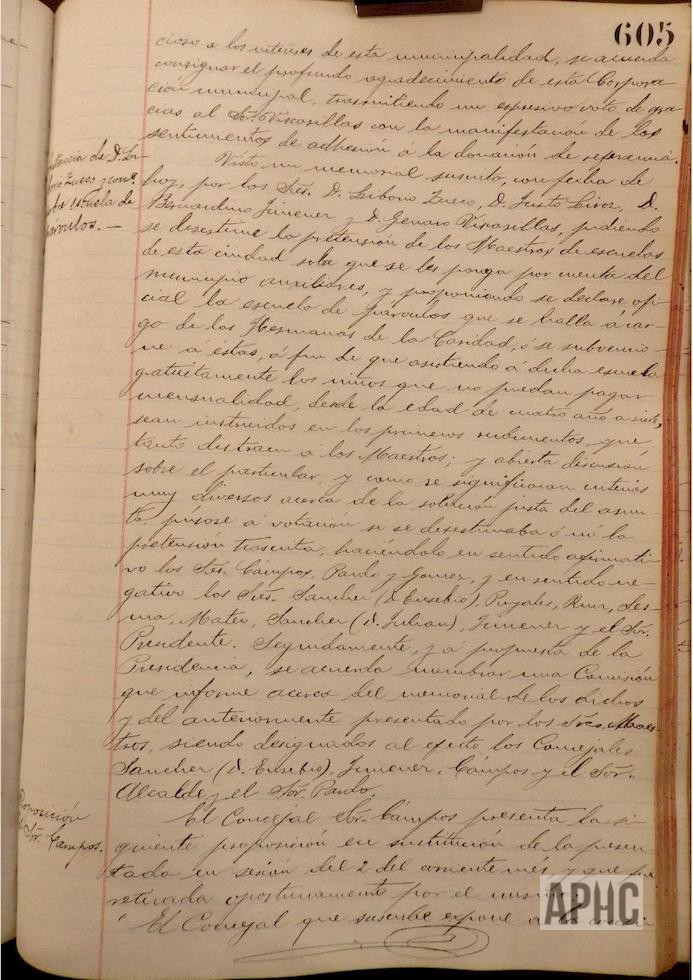 605
cioso a los intereses de esta municipalidad, se acuerda
consignar el profundo agradecimiento de esta Corpora-
ción municipal, trasmitiendo un espresivo voto de gra-
cias al Sr. Viscasillas con la manifestación de los
sentimientos de adhesión á la donación de referencia.
Instancia de D. Li-
borio Zueco y comps.
sobre escuela de
párvulos. —
Visto un memorial suscrito, con fecha de
hoy, por los Sres. D. Liborio Zueco, D. Justo D.
Bernardino Jimenez y D. Genaro Viscasillas, pidiendo
se desestime la pretensión de los Maestros de escuelas
de esta ciudad sobre que se les ponga por cuenta del
municipio auxiliares, y proponiendo se declare ofi-
cial la escuela de párvulos que se halla á car-
go de las Hermanas de la Caridad, ó se subvencio-
ne á éstas, á fin de que asistiendo á dicha escuela
gratuitamente los niños que no puedan pagar
mensualidad, desde la edad de cuatro año a siete,
sean instruidos en los primeros rudimentos, que
tanto distraen a los Maestros; y abierta discusión
sobre el particular, y como se significaran criterios
muy diversos acerca de la solución justa del asun-
to, púsose á votación si se desestimaba ó nó la
pretensión trascrita, haciéndolo en sentido afirmati-
vo los Sres. Cámpos, Pardo y Gomez, y en sentido ne-
gativo los Sres. Sanchez (D. Eusebio), Puyales, Ruiz, Les-
ma, Mateo, Sanchez (D. Julian), Jimenez y el Sor.
Presidente. Seguidamente, y á propuesta de la
Presidencia, se acuerda nombrar una Comisión
que informe acerca del memorial de los dichos
y del anteriormente presentado por los Sres. Maes-
tros, siendo designados al efecto los Concejales
Sanchez (D. Eusebio), Jimenez, Cámpos y el Sor.
Alcalde y el Sor. Pardo.
Proposición
del Sor. Campos.
El Concejal Sor. Cámpos presenta la si-
guiente proposición en sustitución de la presen-
tada en sesión del 2 del corriente mes y que fue
retirada oportunamente por el mismo:
"El Concejal que suscribe expone a la
APHC